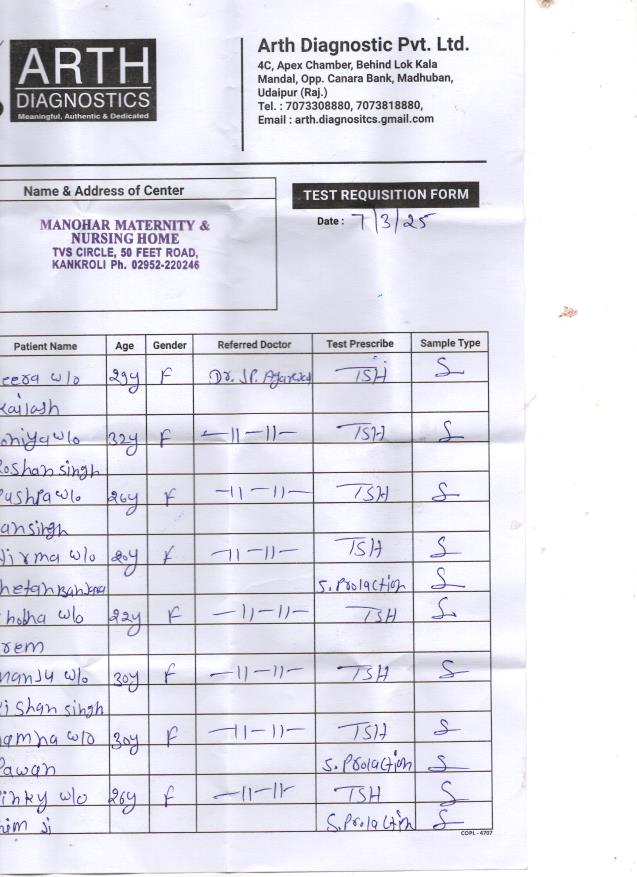 ARTH
DIAGNOSTICS
Meaningful, Authentic & Dedicated
Arth Diagnostic Pvt. Ltd.
4C, Apex Chamber, Behind Lok Kala
Mandal, Opp. Canara Bank, Madhuban,
Udaipur (Raj.)
Tel. : 7073308880, 7073818880,
Email : arth.diagnositcs.gmail.com
Name & Address of Center
MANOHAR MATERNITY &
NURSING HOME
TVS CIRCLE, 50 FEET ROAD,
KANKROLI Ph. 02952-220246
TEST REQUISITION FORM
Date : 7/3/25
Patient Name Age Gender Referred Doctor Test Prescribe Sample Type
eera w/o 29y F Dr. J.P. Agarwal TSH S
kailash
oniya w/o 32y F -11-11- TSH S
Roshan singh
ushpa w/o 26y F -11-11- TSH S
ansingh
irma w/o 20y F -11-11- TSH S
hetan S. Prolaction S
hobha w/o 22y F -11-11- TSH S
rem
manju w/o 30y F -11-11- TSH S
ishan singh
amna w/o 30y F -11-11- TSH S
Pawan S. Prolaction S
inky w/o 26y F -11-11- TSH S
him ji S. Prolaction S
COPL - 4707